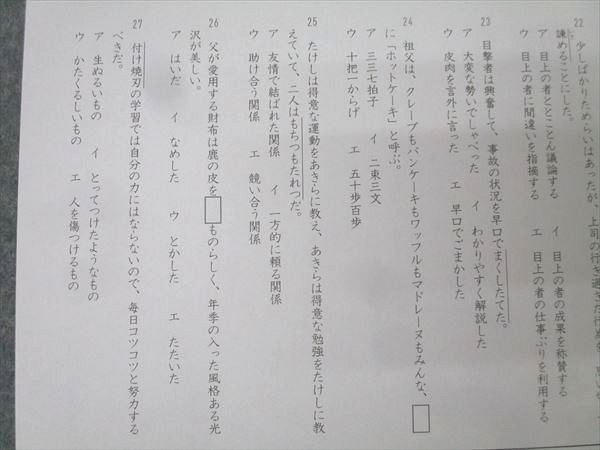 22
少しばかりためらいはあったが、上司の行き過ぎた行為を
諫めることにした。
ア　目上の者ととことん議論する　イ　目上の者の成果を称賛する
ウ　目上の者に間違いを指摘する　エ　目上の者の仕事ぶりを利用する
23
目撃者は興奮して、事故の状況を早口でまくしたてた。
ア　大変な勢いでしゃべった　イ　わかりやすく解説した
ウ　皮肉を言外に言った　エ　早口でごまかした
24
祖父は、クレープもパンケーキもワッフルもマドレーヌもみんな、□
に「ホットケーキ」と呼ぶ。
ア　三三七拍子　イ　二束三文
ウ　十把一からげ　エ　五十歩百歩
25
たけしは得意な運動をあきらに教え、あきらは得意な勉強をたけしに教
えていて、二人はもちつもたれつだ。
ア　友情で結ばれた関係　イ　一方的に頼る関係
ウ　助け合う関係　エ　競い合う関係
26
父が愛用する財布は鹿の皮を□ものらしく、年季の入った風格ある光
沢が美しい。
ア　はいだ　イ　なめした　ウ　とかした　エ　たたいた
27
付け焼刃の学習では自分の力にはならないので、毎日コツコツと努力する
べきだ。
ア　生ぬるいもの　イ　とってつけたようなもの
ウ　かたくるしいもの　エ　人を傷つけるもの